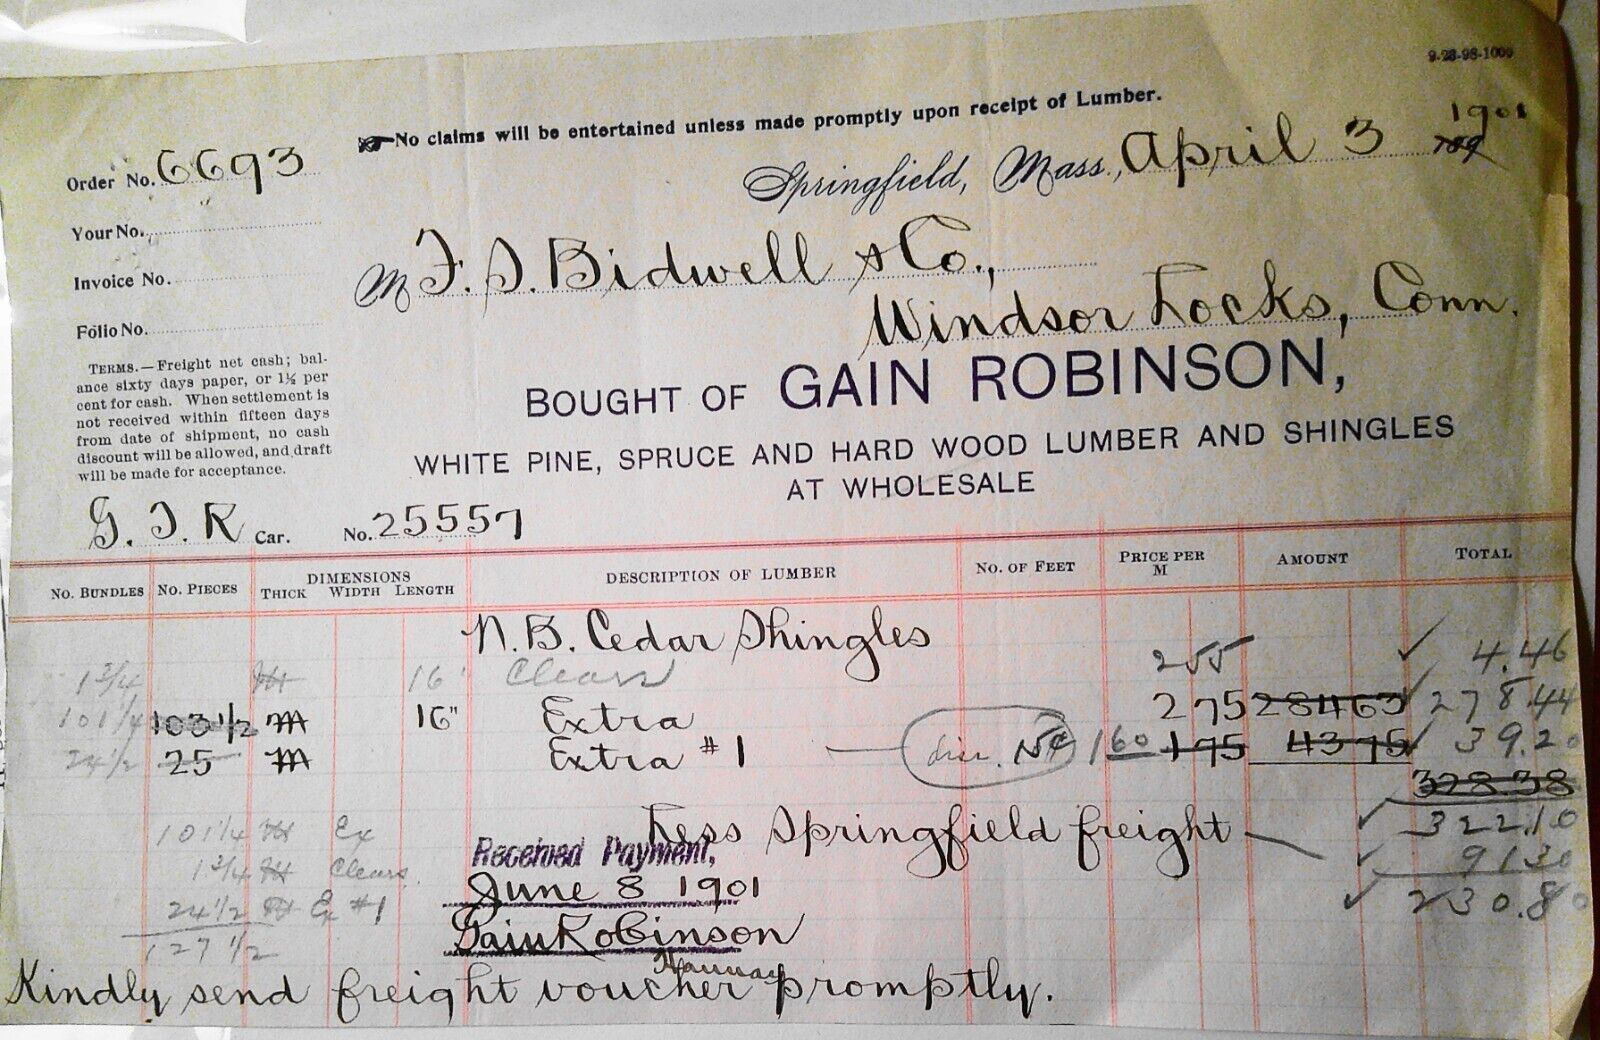 9-28-98-1000
No claims will be entertained unless made promptly upon receipt of Lumber.
Order No. 6693
Springfield, Mass., April 3 1901
Your No.
M F. S. Bidwell & Co.,
Invoice No.
Windsor Locks, Conn.
Folio No.
TERMS.—Freight net cash; bal-
ance sixty days paper, or 1½ per
cent for cash. When settlement is
not received within fifteen days
from date of shipment, no cash
discount will be allowed, and draft
will be made for acceptance.
BOUGHT OF GAIN ROBINSON,
WHITE PINE, SPRUCE AND HARD WOOD LUMBER AND SHINGLES
AT WHOLESALE
G. T. R Car. No. 25557
NO. BUNDLES NO. PIECES DIMENSIONS THICK WIDTH LENGTH DESCRIPTION OF LUMBER NO. OF FEET PRICE PER M AMOUNT TOTAL
N. B. Cedar Shingles
1 3/4 M 16" Clears 255 4.46
101 1/4 103 1/2 M 16" Extra 275 28463 278.44
24 1/2 25 M Extra #1 15¢ 160 175 4375 39.20
328 38
101 1/4 M Ex Less Springfield freight 322.10
1 3/4 M Clears. Received Payment, 91 30
24 1/2 M Ex #1 June 8 1901 230.80
127 1/2 Gain Robinson
Kindly send freight voucher promptly.